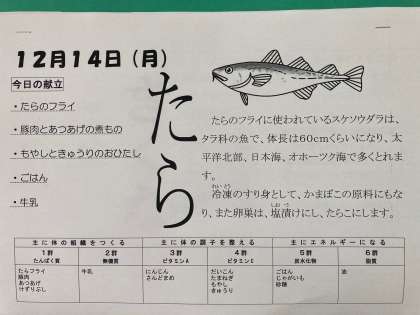 12月14日(月)
今日の献立
・たらのフライ
・豚肉とあつあげの煮もの
・もやしときゅうりのおひたし
・ごはん
・牛乳
たら
たらのフライに使われているスケソウダラは、
タラ科の魚で、体長は60cmくらいになり、太
平洋北部、日本海、オホーツク海で多くとれま
す。
冷凍のすり身として、かまぼこの原料にもな
り、また卵巣は、塩漬けにし、たらこにします。
主に体の組織をつくる 主に体の調子を整える 主にエネルギーになる
1群 2群 3群 4群 5群 6群
たんぱく質 無機質 ビタミンA ビタミンC 炭水化物 脂質
たらフライ 牛乳 にんじん だいこん ごはん 油
豚肉 さんどまめ たまねぎ じゃがいも
あつあげ もやし 砂糖
けずりぶし きゅうり